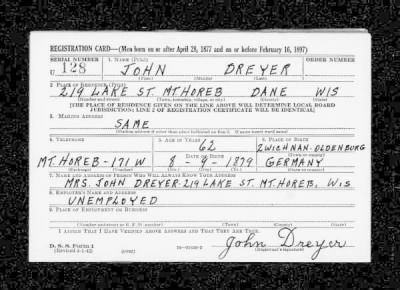 REGISTRATION CARD—(Men born on or after April 28, 1877 and on or before February 16, 1897)
SERIAL NUMBER 1. NAME (Print) ORDER NUMBER
U 128 JOHN DREYER
(First) (Middle) (Last)
2. PLACE OF RESIDENCE (Print)
219 LAKE ST. MT HOREB DANE WIS
(Number and street) (Town, township, village, or city) (County) (State)
[THE PLACE OF RESIDENCE GIVEN ON THE LINE ABOVE WILL DETERMINE LOCAL BOARD
JURISDICTION; LINE 2 OF REGISTRATION CERTIFICATE WILL BE IDENTICAL]
3. MAILING ADDRESS
SAME
[Mailing address if other than place indicated on line 2. If same insert word same]
4. TELEPHONE 5. AGE IN YEARS 6. PLACE OF BIRTH
62 ZWICHNAN-OLDENBURG
DATE OF BIRTH (Town or county)
MT. HOREB-171 W 8-9-1879 GERMANY
(Exchange) (Number) (Mo.) (Day) (Yr.) (State or country)
7. NAME AND ADDRESS OF PERSON WHO WILL ALWAYS KNOW YOUR ADDRESS
MRS. JOHN DREYER-219 LAKE ST. MT. HOREB, WIS
8. EMPLOYER'S NAME AND ADDRESS
UNEMPLOYED
9. PLACE OF EMPLOYMENT OR BUSINESS
(Number and street or R. F. D. number) (Town) (County) (State)
I AFFIRM THAT I HAVE VERIFIED ABOVE ANSWERS AND THAT THEY ARE TRUE.
D. S. S. Form 1
(Revised 4-1-42) (over) John Dreyer
(Registrant's signature)